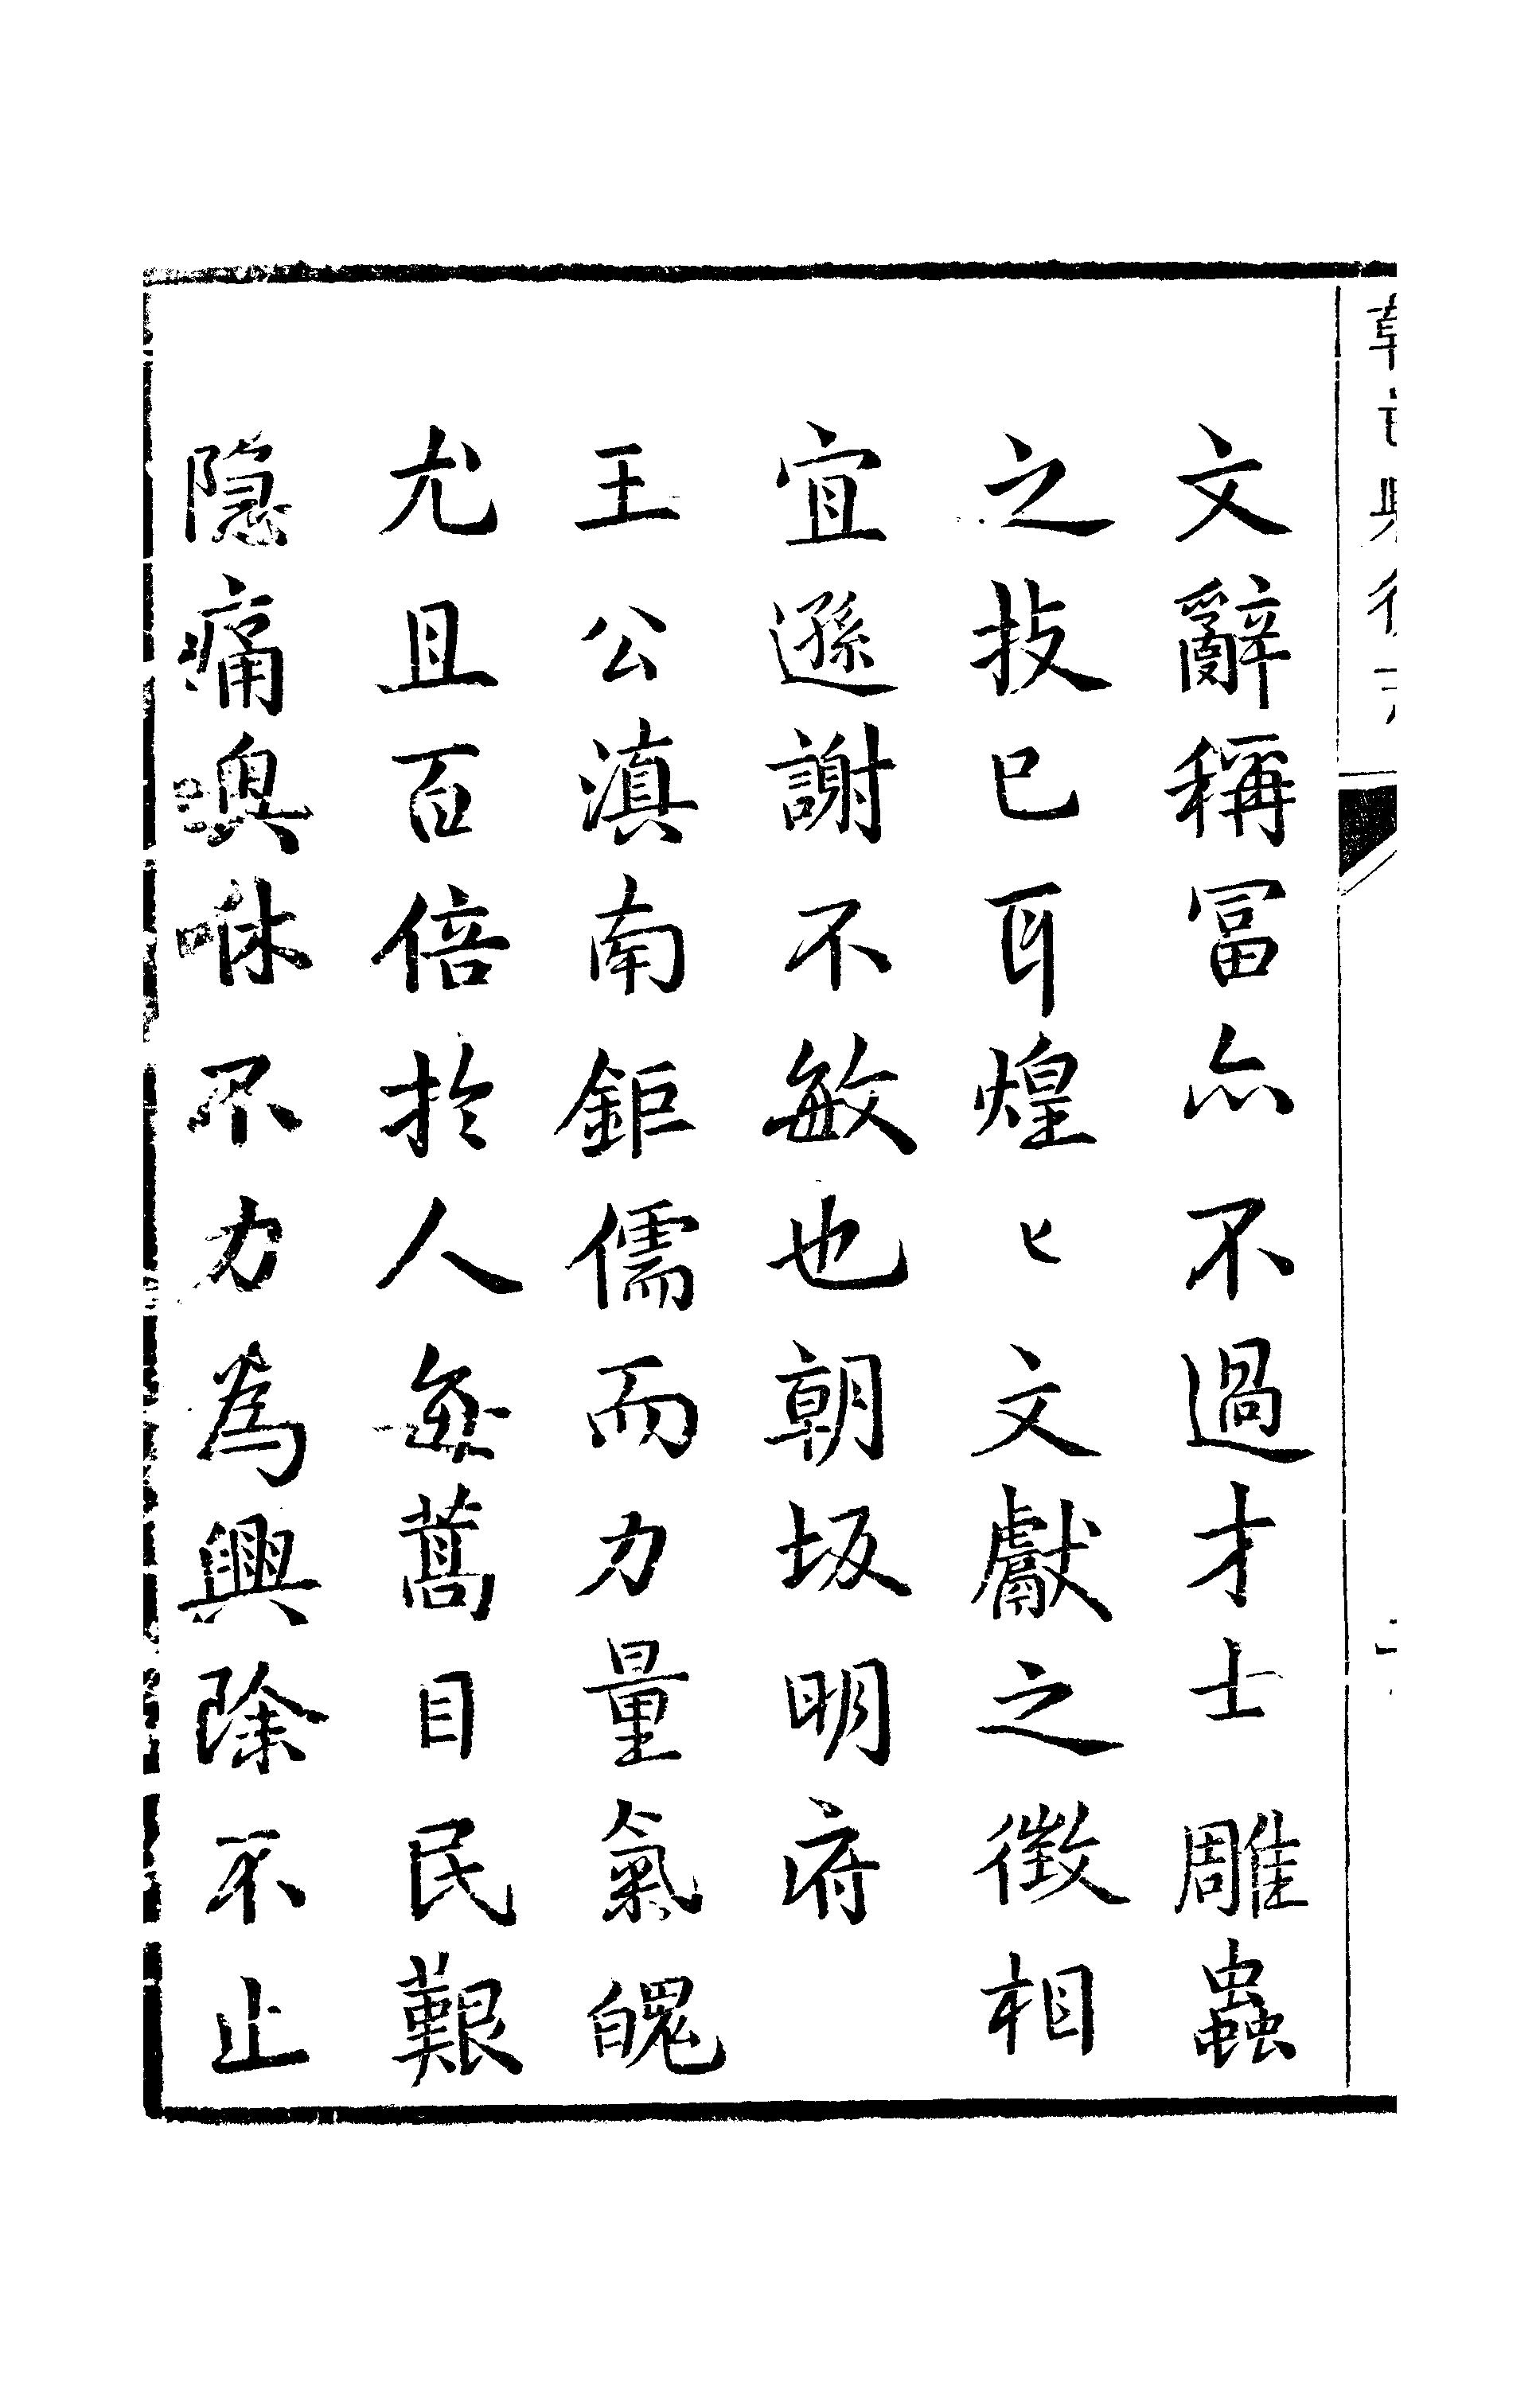 文辭稱冨亦不過才士雕蟲
之技已耳煌〻文獻之徵相
宜遜謝不敏也朝坂明府
王公滇南鉅儒而力量氣魄
尤且百倍於人每蒿目民艱
隐痛噢咻不力為興除不止